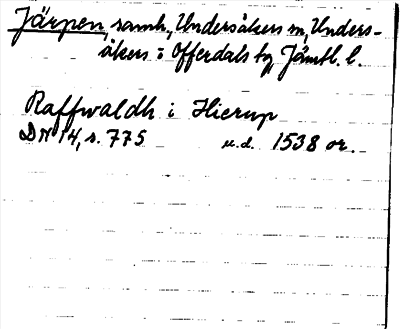 Järpen, samh., Undersåkers sn, Unders-
åkers o Offerdals tg Jämtl. l.
Raffwaldh i Hierup
DN 14, s. 775 u.d. 1538 or.